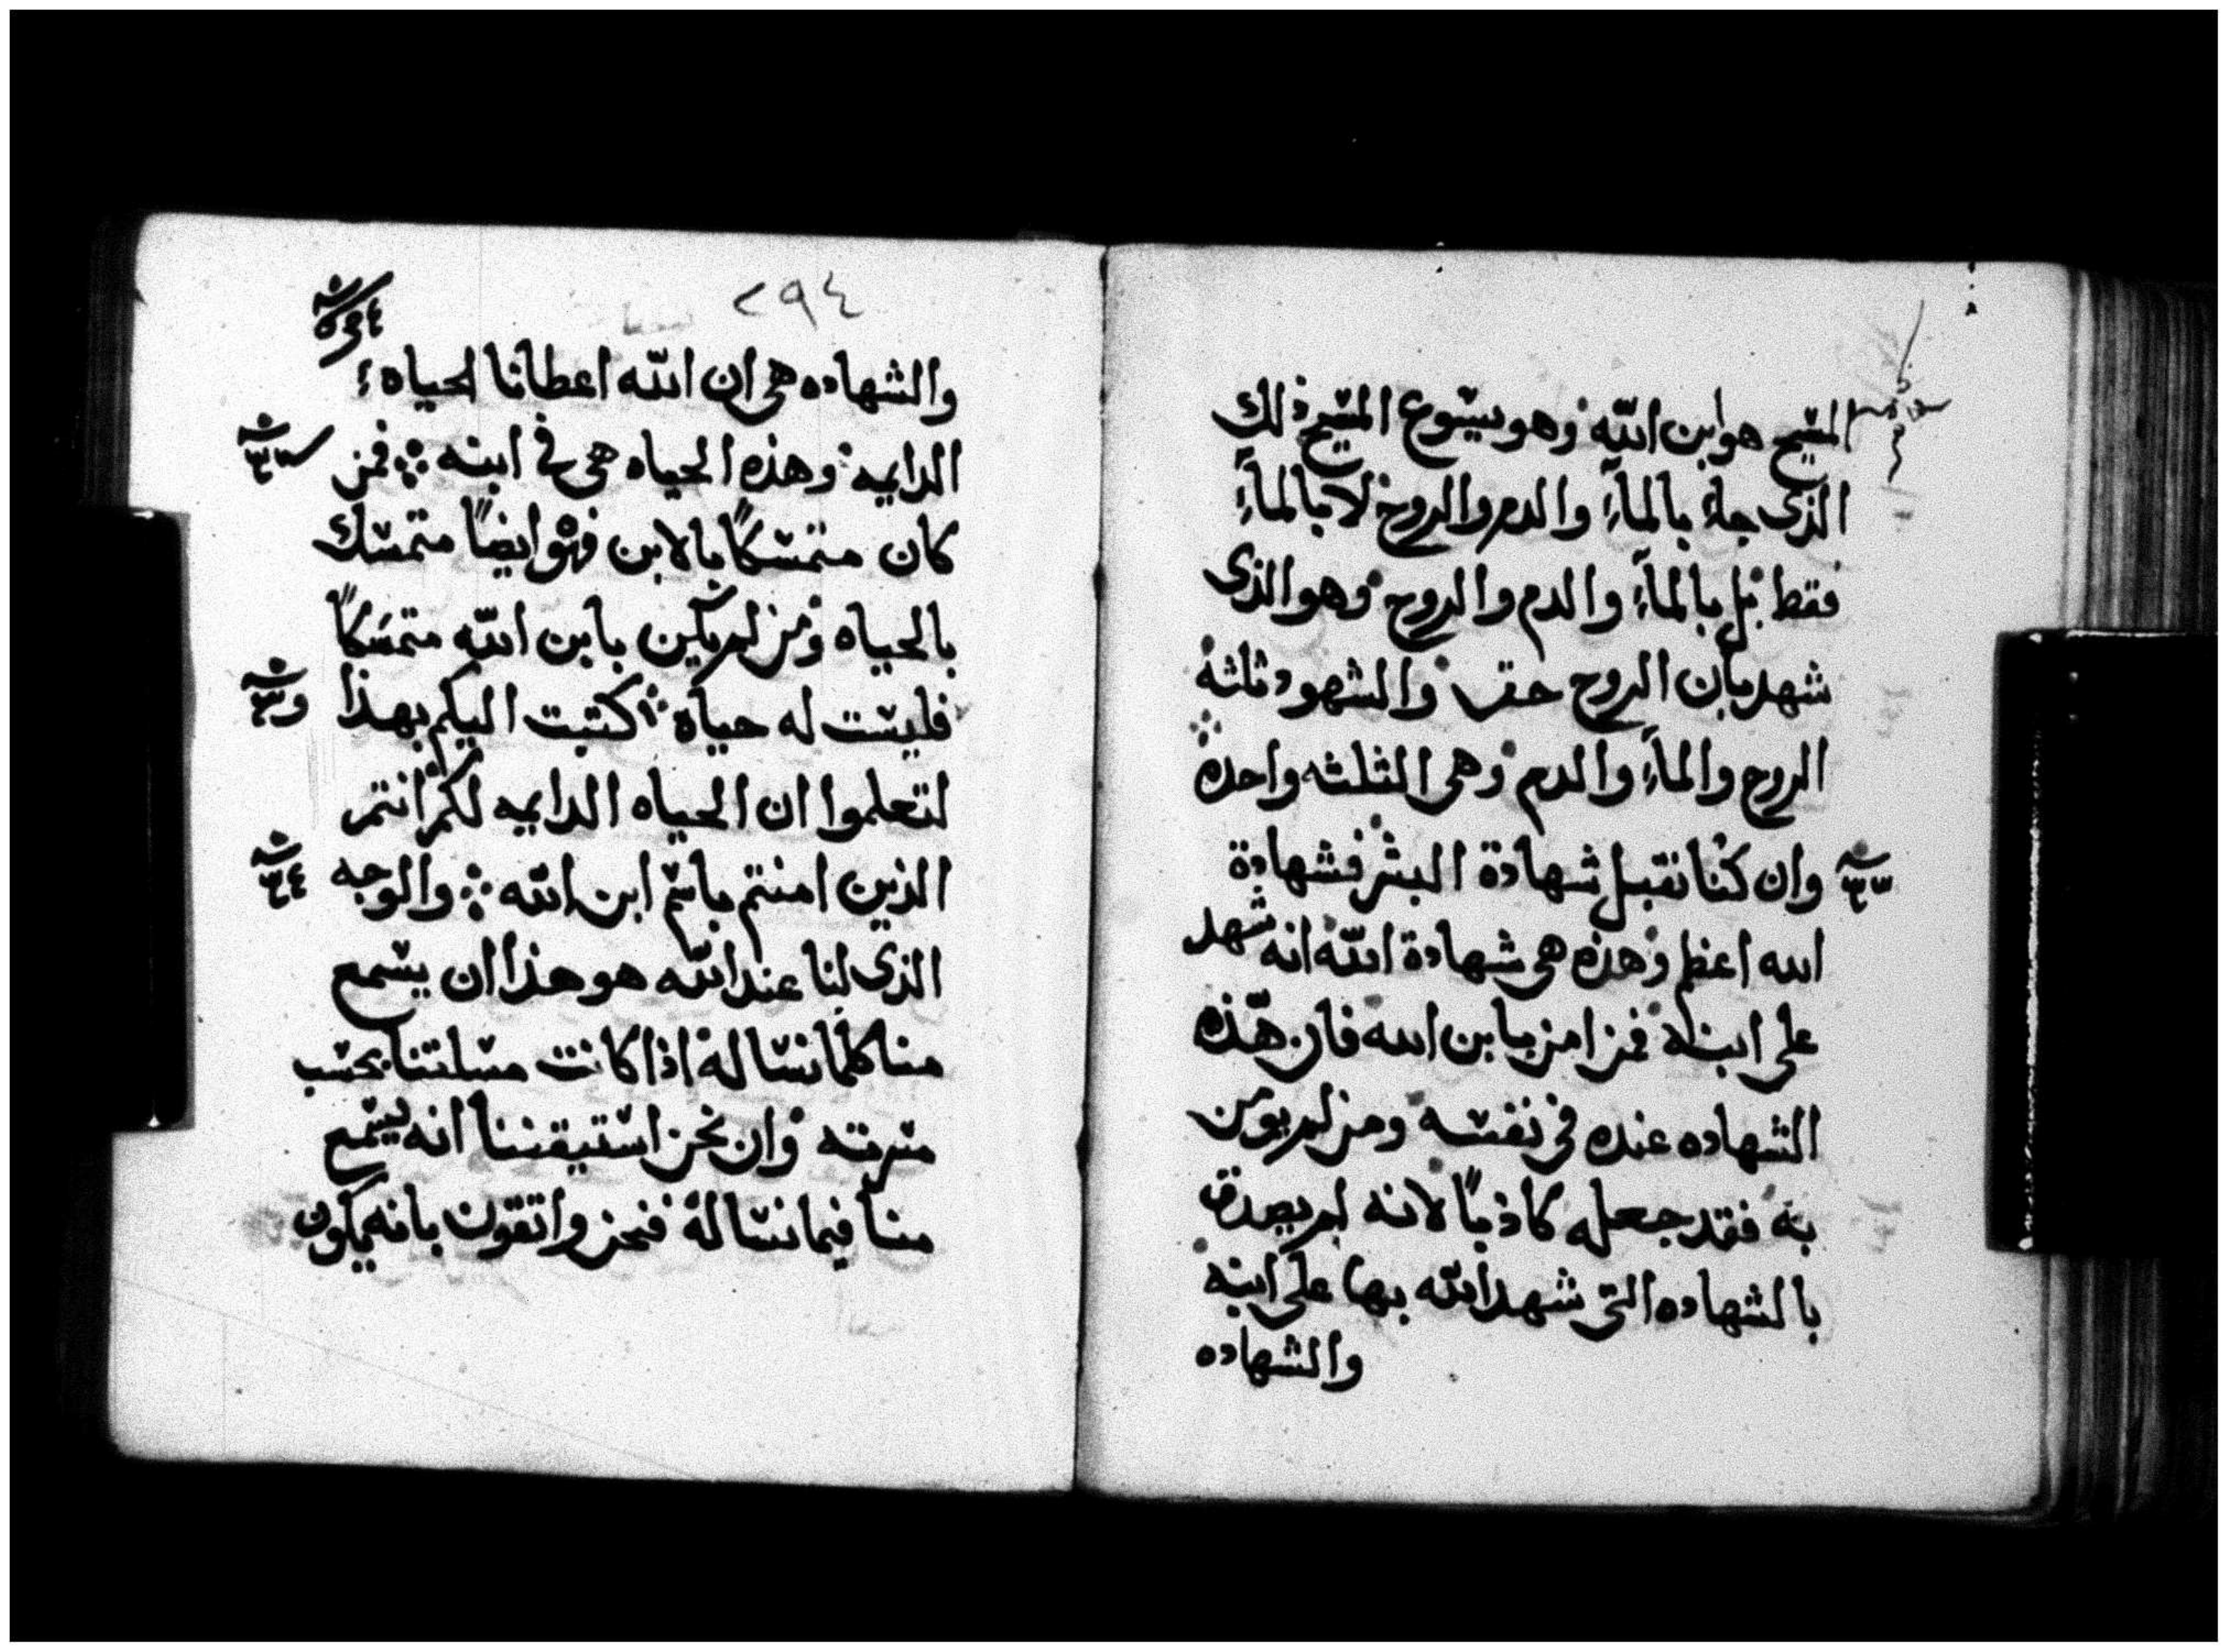 المسيح هو ابن الله وهو يسوع المسيح ذلك
الذى جاء بالمآء والدم والروح لا بالمآء
فقط بل بالمآء والدم والروح وهو الذى
شهد بان الروح حق والشهود ثلثه
الروح والمآء والدم وهى الثلثه واحده
وان كنا نقبل شهادة البشر فشهادة
الله اعظم وهذه هى شهادة الله انه شهد
على ابنه فمن امن بابن الله فان هذه
الشهاده عنده فى نفسه ومن لم يومن
به فقد جعله كاذبًا لانه لم يصدق
بالشهاده التى شهد الله بها على ابنه
والشهاده
٢٩٤
والشهاده هى ان الله اعطانا الحياه
الدايمه وهذه الحياه هى فى ابنه فمن
كان متمسكًا بالابن فهو ايضًا متمسك
بالحياه ومن لم يكن بابن الله متمسكًا
فليست له حياه كتبت اليكم بهذا
لتعلموا ان الحياه الدايمه لكم انتم
الذين امنتم باسم ابن الله والوجه
الذى لنا عند الله هو هذا ان يسمع
منا كلما نساله اذا كانت مسلتنا بحسب
مسرته وان نحن استيقننا انه يسمع
منا فيما نساله فنحن واثقون بانه يكون